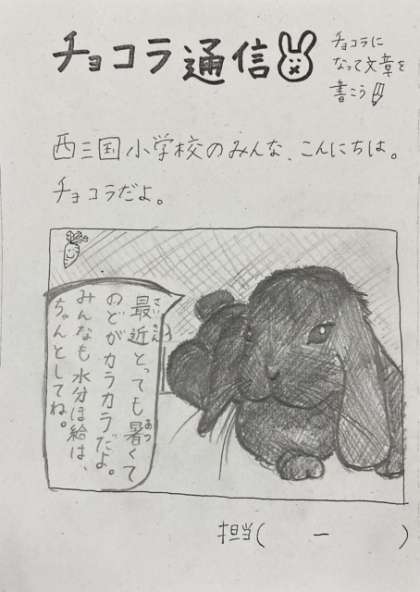 チョコラ通信
チョコラに
なって文章を
書こう
西三国小学校のみんな、こんにちは。
チョコラだよ。
最近とっても暑くて
さいきん
あつ
のどがカラカラだよ。
みんなも水分ほ給は、
ちゃんとしてね。
担当( ー )